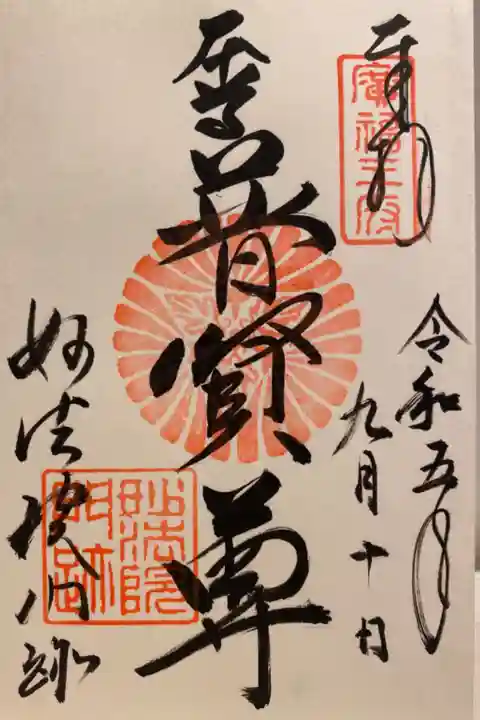 奉拝
令和五年
九月十日
普賢尊
妙法院門跡
妙法院門跡